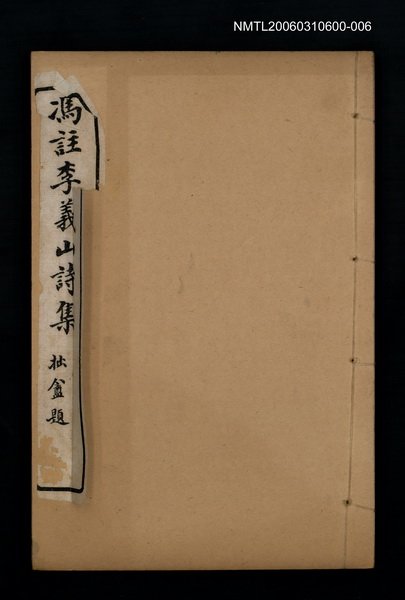 NMTL20060310600-006
馮註李義山詩集
拙盦題